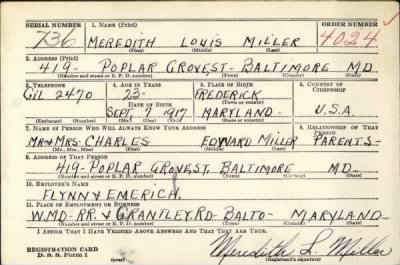 SERIAL NUMBER 1. NAME (Print) ORDER NUMBER
736 MEREDITH LOUIS MILLER 4024
(First) (Middle) (Last)
2. ADDRESS (Print)
419- POPLAR GROVE ST- BALTIMORE MD.
(Number and street or R. F. D. number) (Town) (County) (State)
3. TELEPHONE 4. AGE IN YEARS 5. PLACE OF BIRTH 6. COUNTRY OF CITIZENSHIP
Gil 2470 23- FREDERICK
DATE OF BIRTH (Town or county)
SEPT. 9 1917 MARYLAND- U.S.A
(Exchange) (Number) (Mo.) (Day) (Yr.) (State or country)
7. NAME OF PERSON WHO WILL ALWAYS KNOW YOUR ADDRESS 8. RELATIONSHIP OF THAT PERSON
MR & MRS- CHARLES EDWARD MILLER PARENTS-
(Mr., Mrs., Miss) (First) (Middle) (Last)
9. ADDRESS OF THAT PERSON
419-POPLAR GROVE ST, BALTIMORE MD-
(Number and street or R. F. D. number) (Town) (County) (State)
10. EMPLOYER'S NAME
FLYNN & EMERICH,
11. PLACE OF EMPLOYMENT OR BUSINESS
W.MD-RR. & GRANTLEY RD- BALTO- MARYLAND-
(Number and street or R. F. D. number) (Town) (County) (State)
I AFFIRM THAT I HAVE VERIFIED ABOVE ANSWERS AND THAT THEY ARE TRUE.
REGISTRATION CARD
D. S. S. Form 1
Meredith L. Miller
(Registrant's signature)